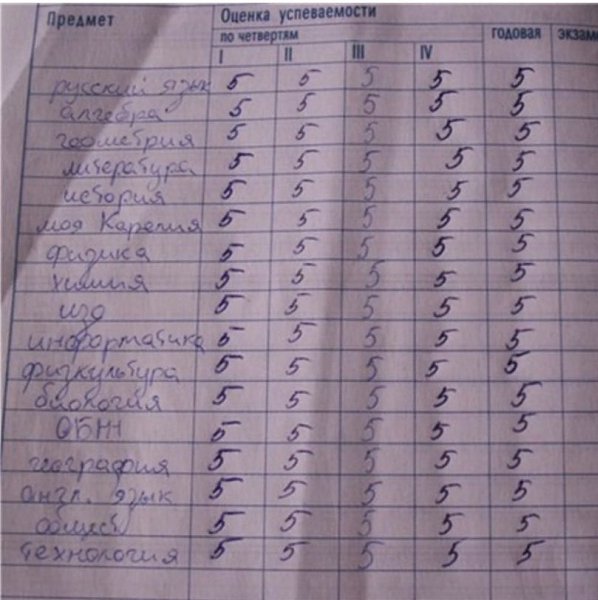 Предмет Оценка успеваемости
по четвертям годовая экзам
I II III IV
русский язык 5 5 5 5 5
алгебра 5 5 5 5 5
геометрия 5 5 5 5 5
литература 5 5 5 5 5
история 5 5 5 5 5
моя Карелия 5 5 5 5 5
физика 5 5 5 5 5
химия 5 5 5 5 5
изо 5 5 5 5 5
информатика 5 5 5 5 5
физкультура 5 5 5 5 5
биология 5 5 5 5 5
ОБЖ 5 5 5 5 5
география 5 5 5 5 5
англ. язык 5 5 5 5 5
общест 5 5 5 5 5
технология 5 5 5 5 5